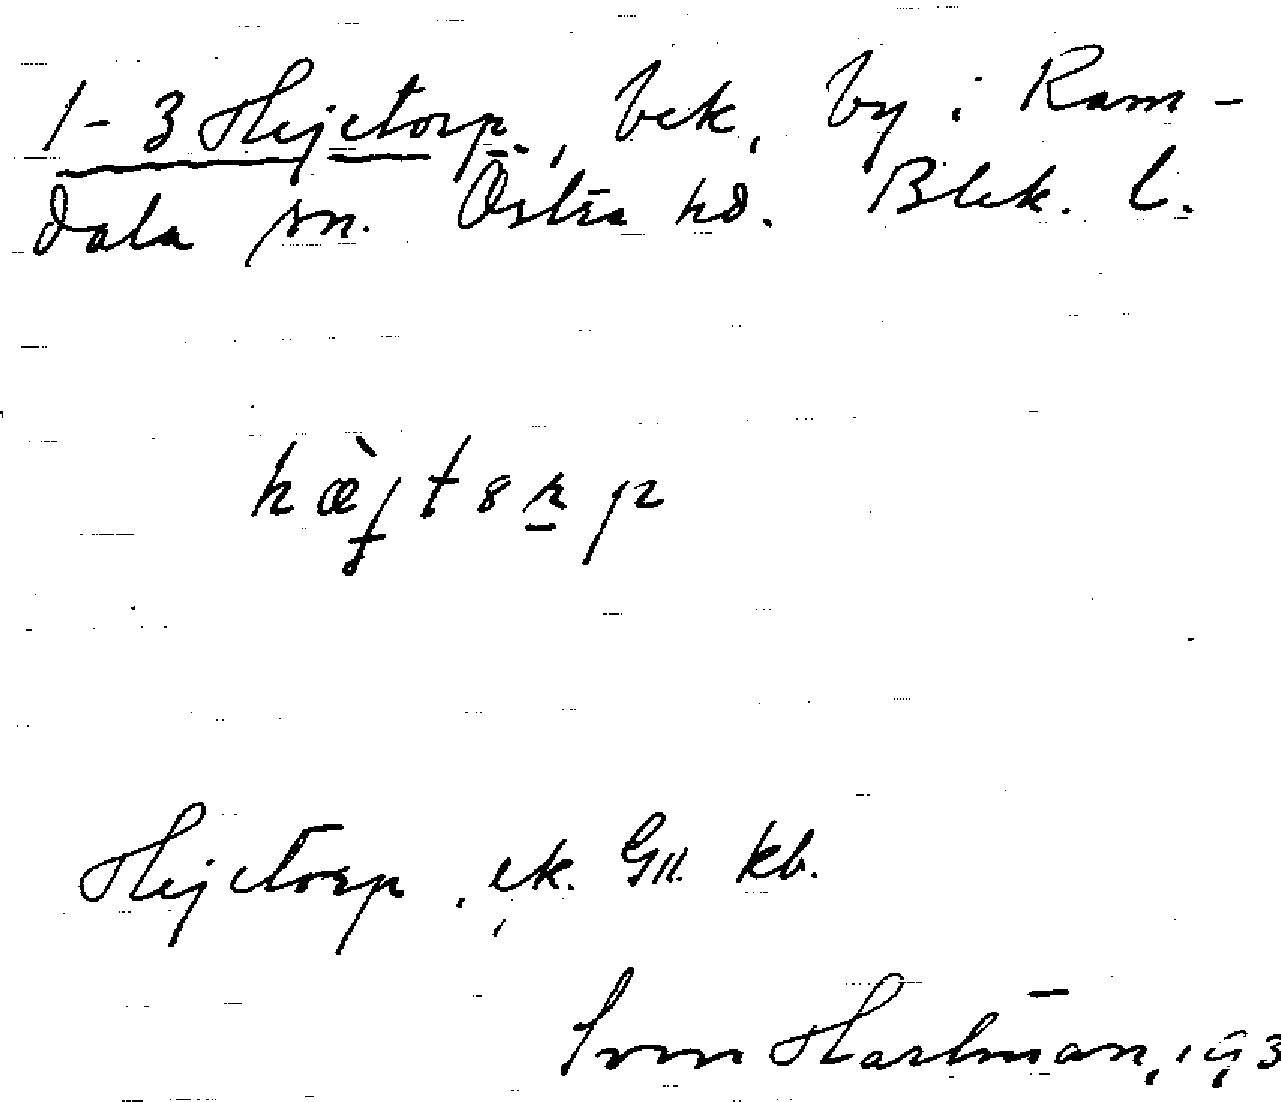 1-3 Hejetorp, bek. by i Ram-
dala sn. Östra hd. Blek. l.
Hejetorp, ek. GII. kb.
Sven Hartman, 193